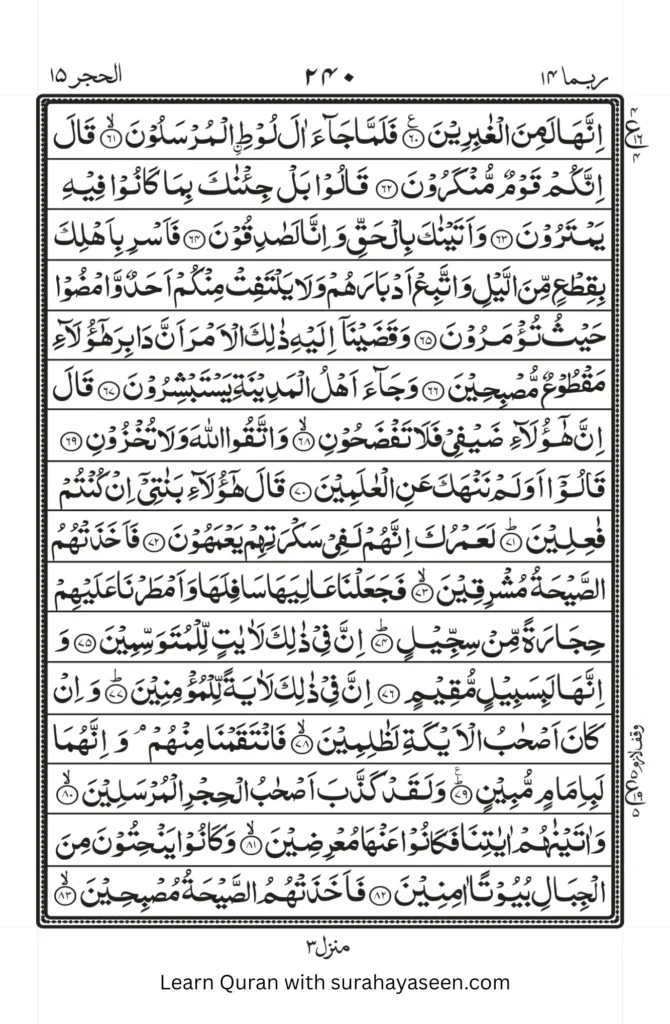 ربما ١٤ ٢٤٠ الحجر ١٥
اِنَّهَا لَمِنَ الْغٰبِرِيْنَ ۝٦٠ فَلَمَّا جَآءَ اٰلَ لُوْطِ ِ۟الْمُرْسَلُوْنَ ۝٦١ۙ قَالَ
اِنَّكُمْ قَوْمٌ مُّنْكَرُوْنَ ۝٦٢ قَالُوْا بَلْ جِئْنٰكَ بِمَا كَانُوْا فِيْهِ
يَمْتَرُوْنَ ۝٦٣ وَاَتَيْنٰكَ بِالْحَقِّ وَاِنَّا لَصٰدِقُوْنَ ۝٦٤ فَاَسْرِ بِاَهْلِكَ
بِقِطْعٍ مِّنَ الَّيْلِ وَاتَّبِعْ اَدْبَارَهُمْ وَلَا يَلْتَفِتْ مِنْكُمْ اَحَدٌ وَّامْضُوْا
حَيْثُ تُؤْمَرُوْنَ ۝٦٥ وَقَضَيْنَآ اِلَيْهِ ذٰلِكَ الْاَمْرَ اَنَّ دَابِرَ هٰٓؤُلَآءِ
مَقْطُوْعٌ مُّصْبِحِيْنَ ۝٦٦ وَجَآءَ اَهْلُ الْمَدِيْنَةِ يَسْتَبْشِرُوْنَ ۝٦٧ قَالَ
اِنَّ هٰٓؤُلَآءِ ضَيْفِيْ فَلَا تَفْضَحُوْنِ ۝٦٨ۙ وَاتَّقُوا اللّٰهَ وَلَا تُخْزُوْنِ ۝٦٩
قَالُوْٓا اَوَلَمْ نَنْهَكَ عَنِ الْعٰلَمِيْنَ ۝٧٠ قَالَ هٰٓؤُلَآءِ بَنٰتِيْٓ اِنْ كُنْتُمْ
فٰعِلِيْنَ ۝٧١ؕ لَعَمْرُكَ اِنَّهُمْ لَفِيْ سَكْرَتِهِمْ يَعْمَهُوْنَ ۝٧٢ فَاَخَذَتْهُمُ
الصَّيْحَةُ مُشْرِقِيْنَ ۝٧٣ۙ فَجَعَلْنَا عَالِيَهَا سَافِلَهَا وَاَمْطَرْنَا عَلَيْهِمْ
حِجَارَةً مِّنْ سِجِّيْلٍ ۝٧٤ؕ اِنَّ فِيْ ذٰلِكَ لَاٰيٰتٍ لِّلْمُتَوَسِّمِيْنَ ۝٧٥ وَ
اِنَّهَا لَبِسَبِيْلٍ مُّقِيْمٍ ۝٧٦ اِنَّ فِيْ ذٰلِكَ لَاٰيَةً لِّلْمُؤْمِنِيْنَ ۝٧٧ؕ وَاِنْ
كَانَ اَصْحٰبُ الْاَيْكَةِ لَظٰلِمِيْنَ ۝٧٨ۙ فَانْتَقَمْنَا مِنْهُمْ ۘ وَاِنَّهُمَا
لَبِاِمَامٍ مُّبِيْنٍ ۝٧٩ؕ وَلَقَدْ كَذَّبَ اَصْحٰبُ الْحِجْرِ الْمُرْسَلِيْنَ ۝٨٠ۙ
وَاٰتَيْنٰهُمْ اٰيٰتِنَا فَكَانُوْا عَنْهَا مُعْرِضِيْنَ ۝٨١ۙ وَكَانُوْا يَنْحِتُوْنَ مِنَ
الْجِبَالِ بُيُوْتًا اٰمِنِيْنَ ۝٨٢ فَاَخَذَتْهُمُ الصَّيْحَةُ مُصْبِحِيْنَ ۝٨٣ۙ
وقف لازم
منزل ٣
Learn Quran with surahayaseen.com